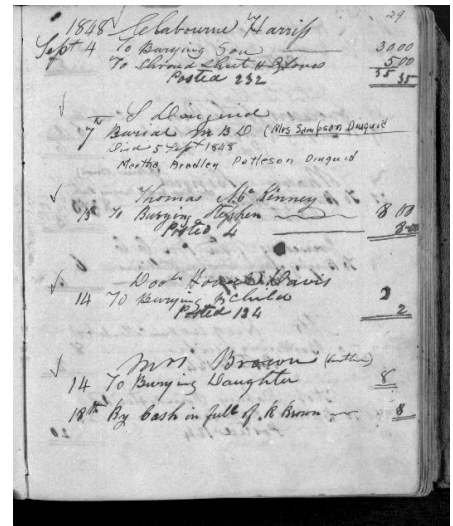 29
1848 Clabourne Harriss
Sept 4 To Burying Son 30.00
To Shroud Sheet & Gloves 5.00
Posted 232 35 35
S Diuguid
7th Burial Mr B D (Mrs Sampson Diuguid
Died 5 Sept 1848
Martha Bradley Patteson Diuguid
Thomas McKinney
13 To Burying Stephen 8.00
Posted 4 8.00
Doct Davis
14 To Burying Child 2
Posted 134 2
Mrs Brown
14 To Burying Daughter 8
18th By Cash in full of R Brown 8